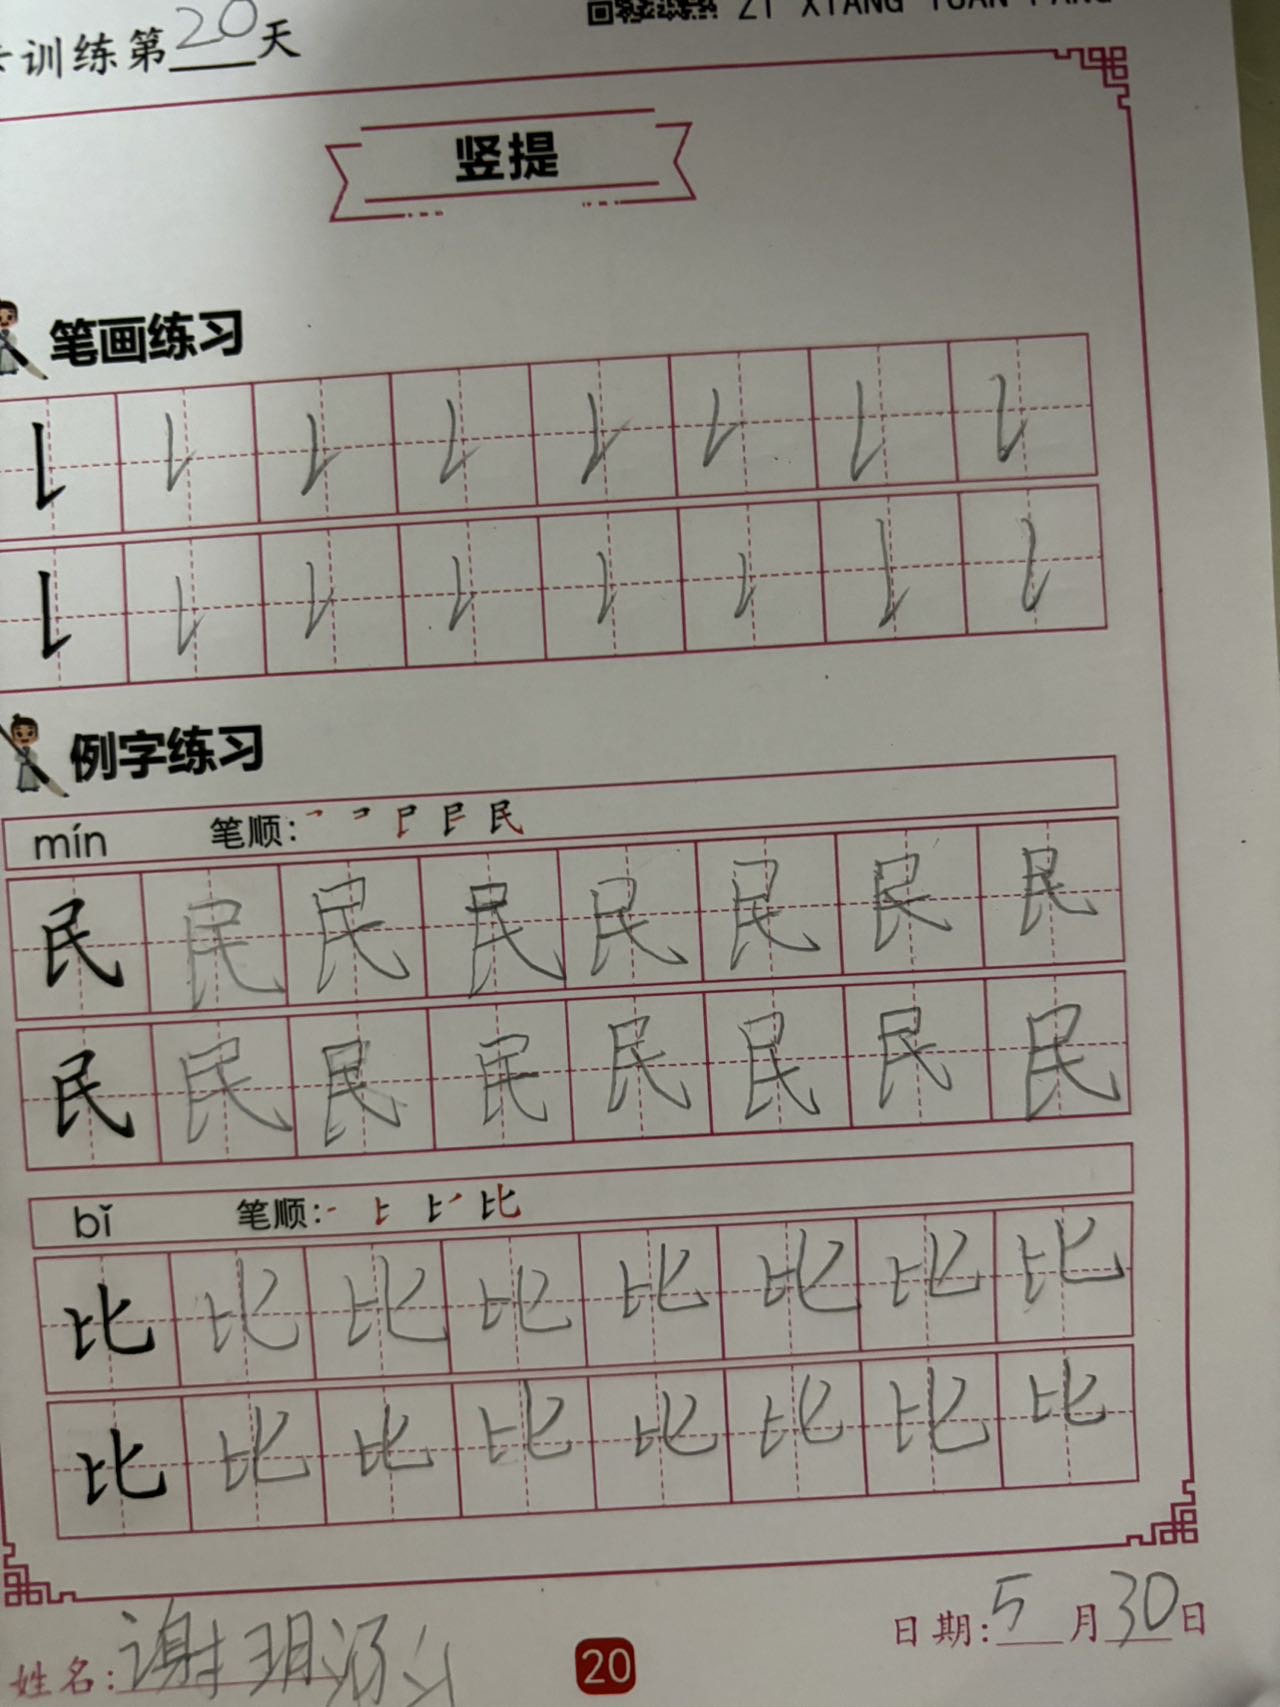 训练第20天
ZI XIANG YUAN FANG
竖提
笔画练习
例字练习
mín 笔顺:
民 民 民 民 民 民 民 民
民 民 民 民 民 民 民 民
bǐ 笔顺:
比 比 比 比 比 比 比 比
比 比 比 比 比 比 比 比
姓名: 谢玥
20
日期: 5月30日